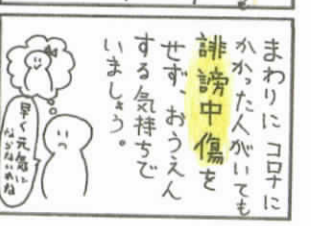 まわりに コロナに
かかった人がいても
誹謗中傷を
せず、おうえん
する気持ちで
いましょう。
早く元気に
なるといいね